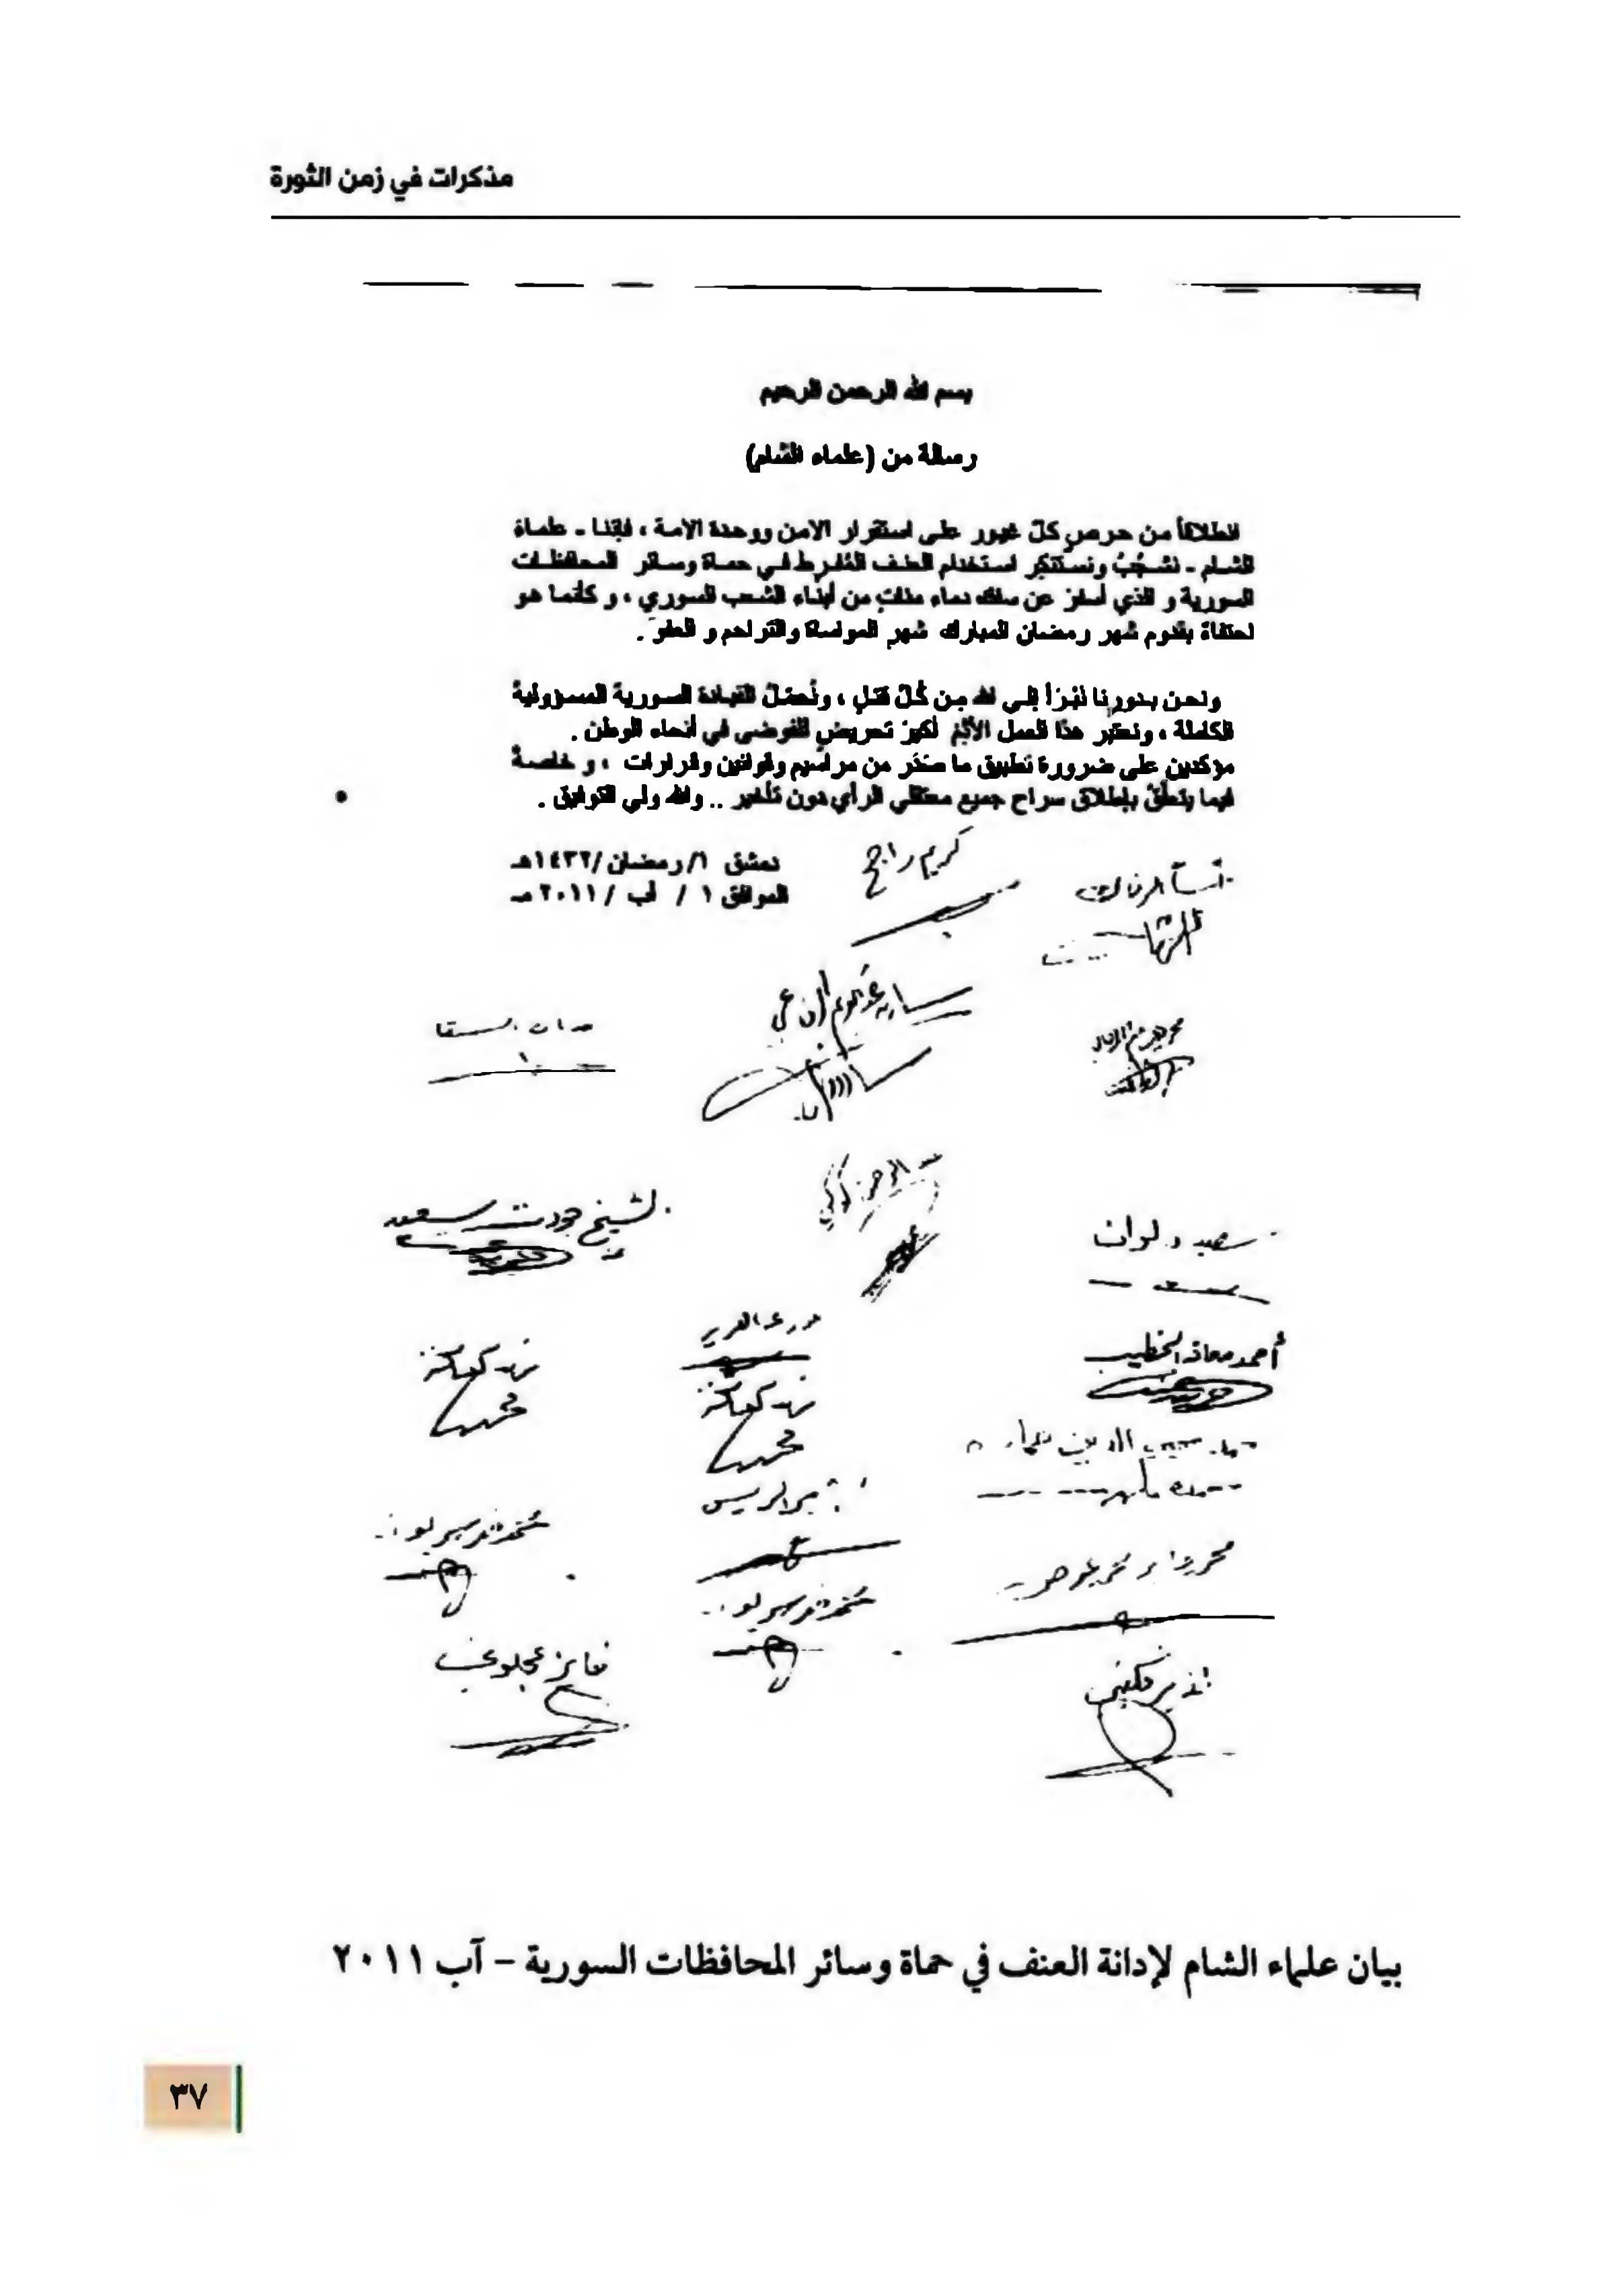 مذكرات في زمن الثورة
بسم الله الرحمن الرحيم
رسالة من (علماء الشام)
انطلاقاً من حرصِ كلّ غيور على استقرار الأمن ووحدة الأمة ، فإننا - علماءَ
الشام - نشجُبُ ونستنكِر استخدام العنف المُفرط في حماة وسائر المحافظات
السورية و الذي أسفرَ عن سفك دماء مئاتٍ من أبناء الشعب السوري ، و كأنما هو
احتفاءً بقدوم شهر رمضان المبارك شهرِ المواساة والتراحم و العفو .
ونحن بدورنا نَبْرَأ إلى الله مِن كُلّ قتلٍ ، ونُحمّلُ القيادة السورية المسؤولية
الكاملة ، ونعتبر هذا العمل الآثم أكبرَ تحريضٍ للفوضى في أنحاء الوطن .
مؤكدين على ضرورة تطبيق ما صَدَر من مراسيم وقوانين وقرارات ، و خاصةً
فيما يتعلّق بإطلاق سراح جميع معتقلي الرأي دون تأخير .. والله ولي التوفيق .
دمشق ١/رمضان/١٤٣٢هـ
الموافق ١ / آب /٢٠١١مـ
كريم راجح
أسامة الرفاعي
سارية عبد الكريم الرفاعي
عدنان السقا
الشيخ جودت سعيد
عبد الرحمن كوكي
سعيد دلوان
أحمد معاذ الخطيب
نذير مكتبي
فايز عجلوني
بيان علماء الشام لإدانة العنف في حماة وسائر المحافظات السورية – آب ٢٠١١
٣٧